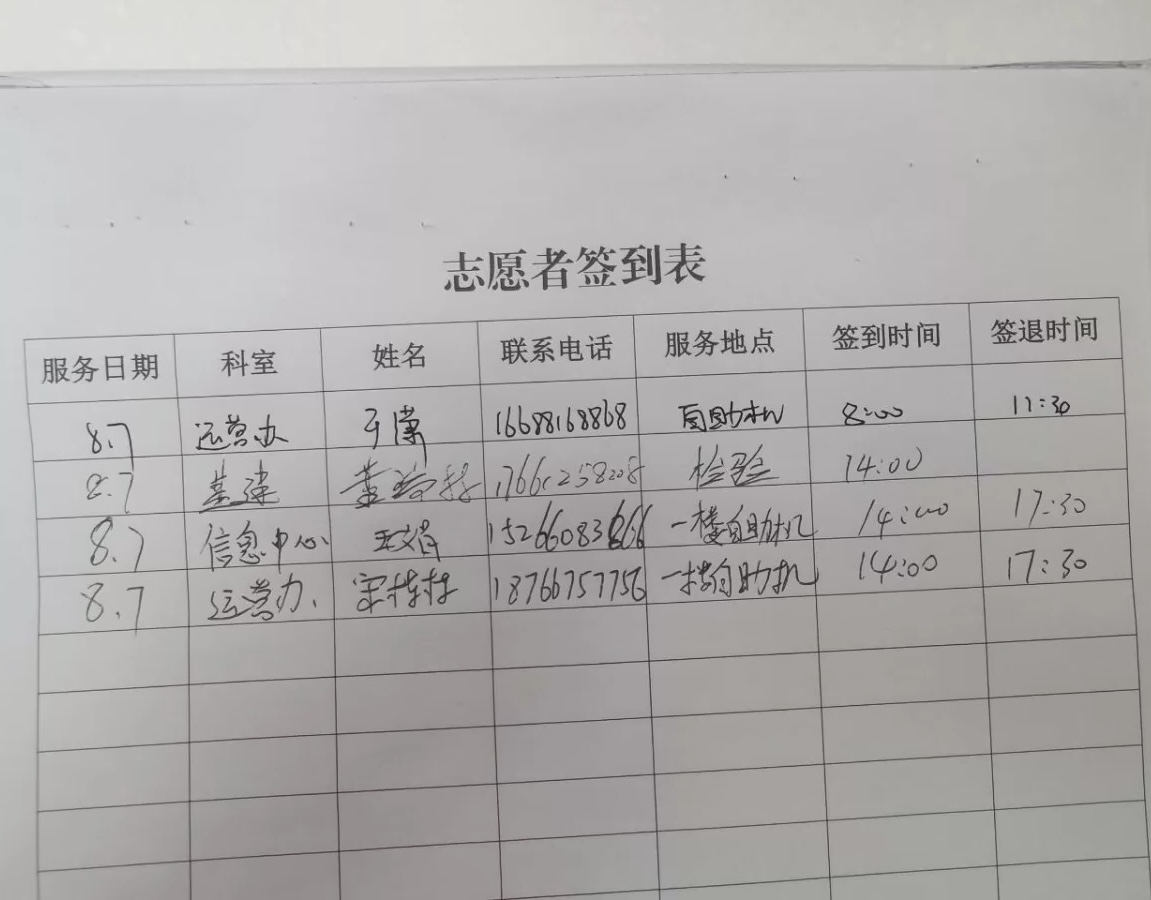 志愿者签到表
服务日期 科室 姓名 联系电话 服务地点 签到时间 签退时间
8.7 运营办 于 16688168868 自助机 8:00 11:30
8.7 基建 董 检验 14:00
8.7 信息中心 王文娟 15266083666 一楼自助机 14:00 17:30
8.7 运营办 宋 18766757756 一楼自助机 14:00 17:30